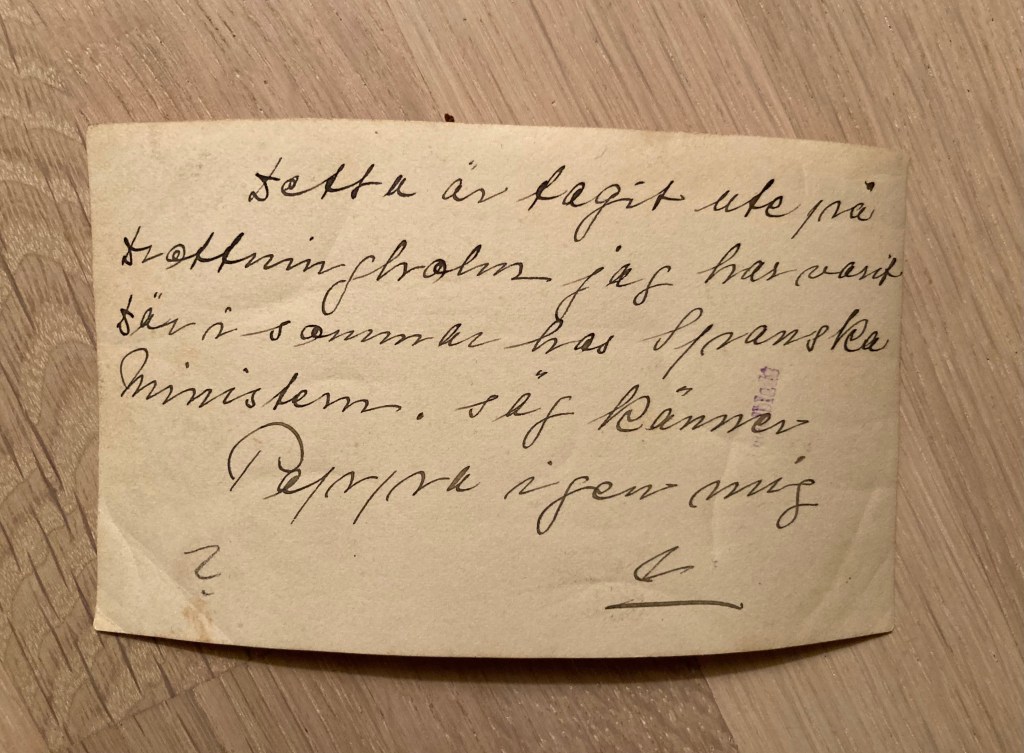 Detta är tagit ute på
Drottningholm jag har varit
där i sommar hos Spanska
Ministern. säg känner
Pappa igen mig
?